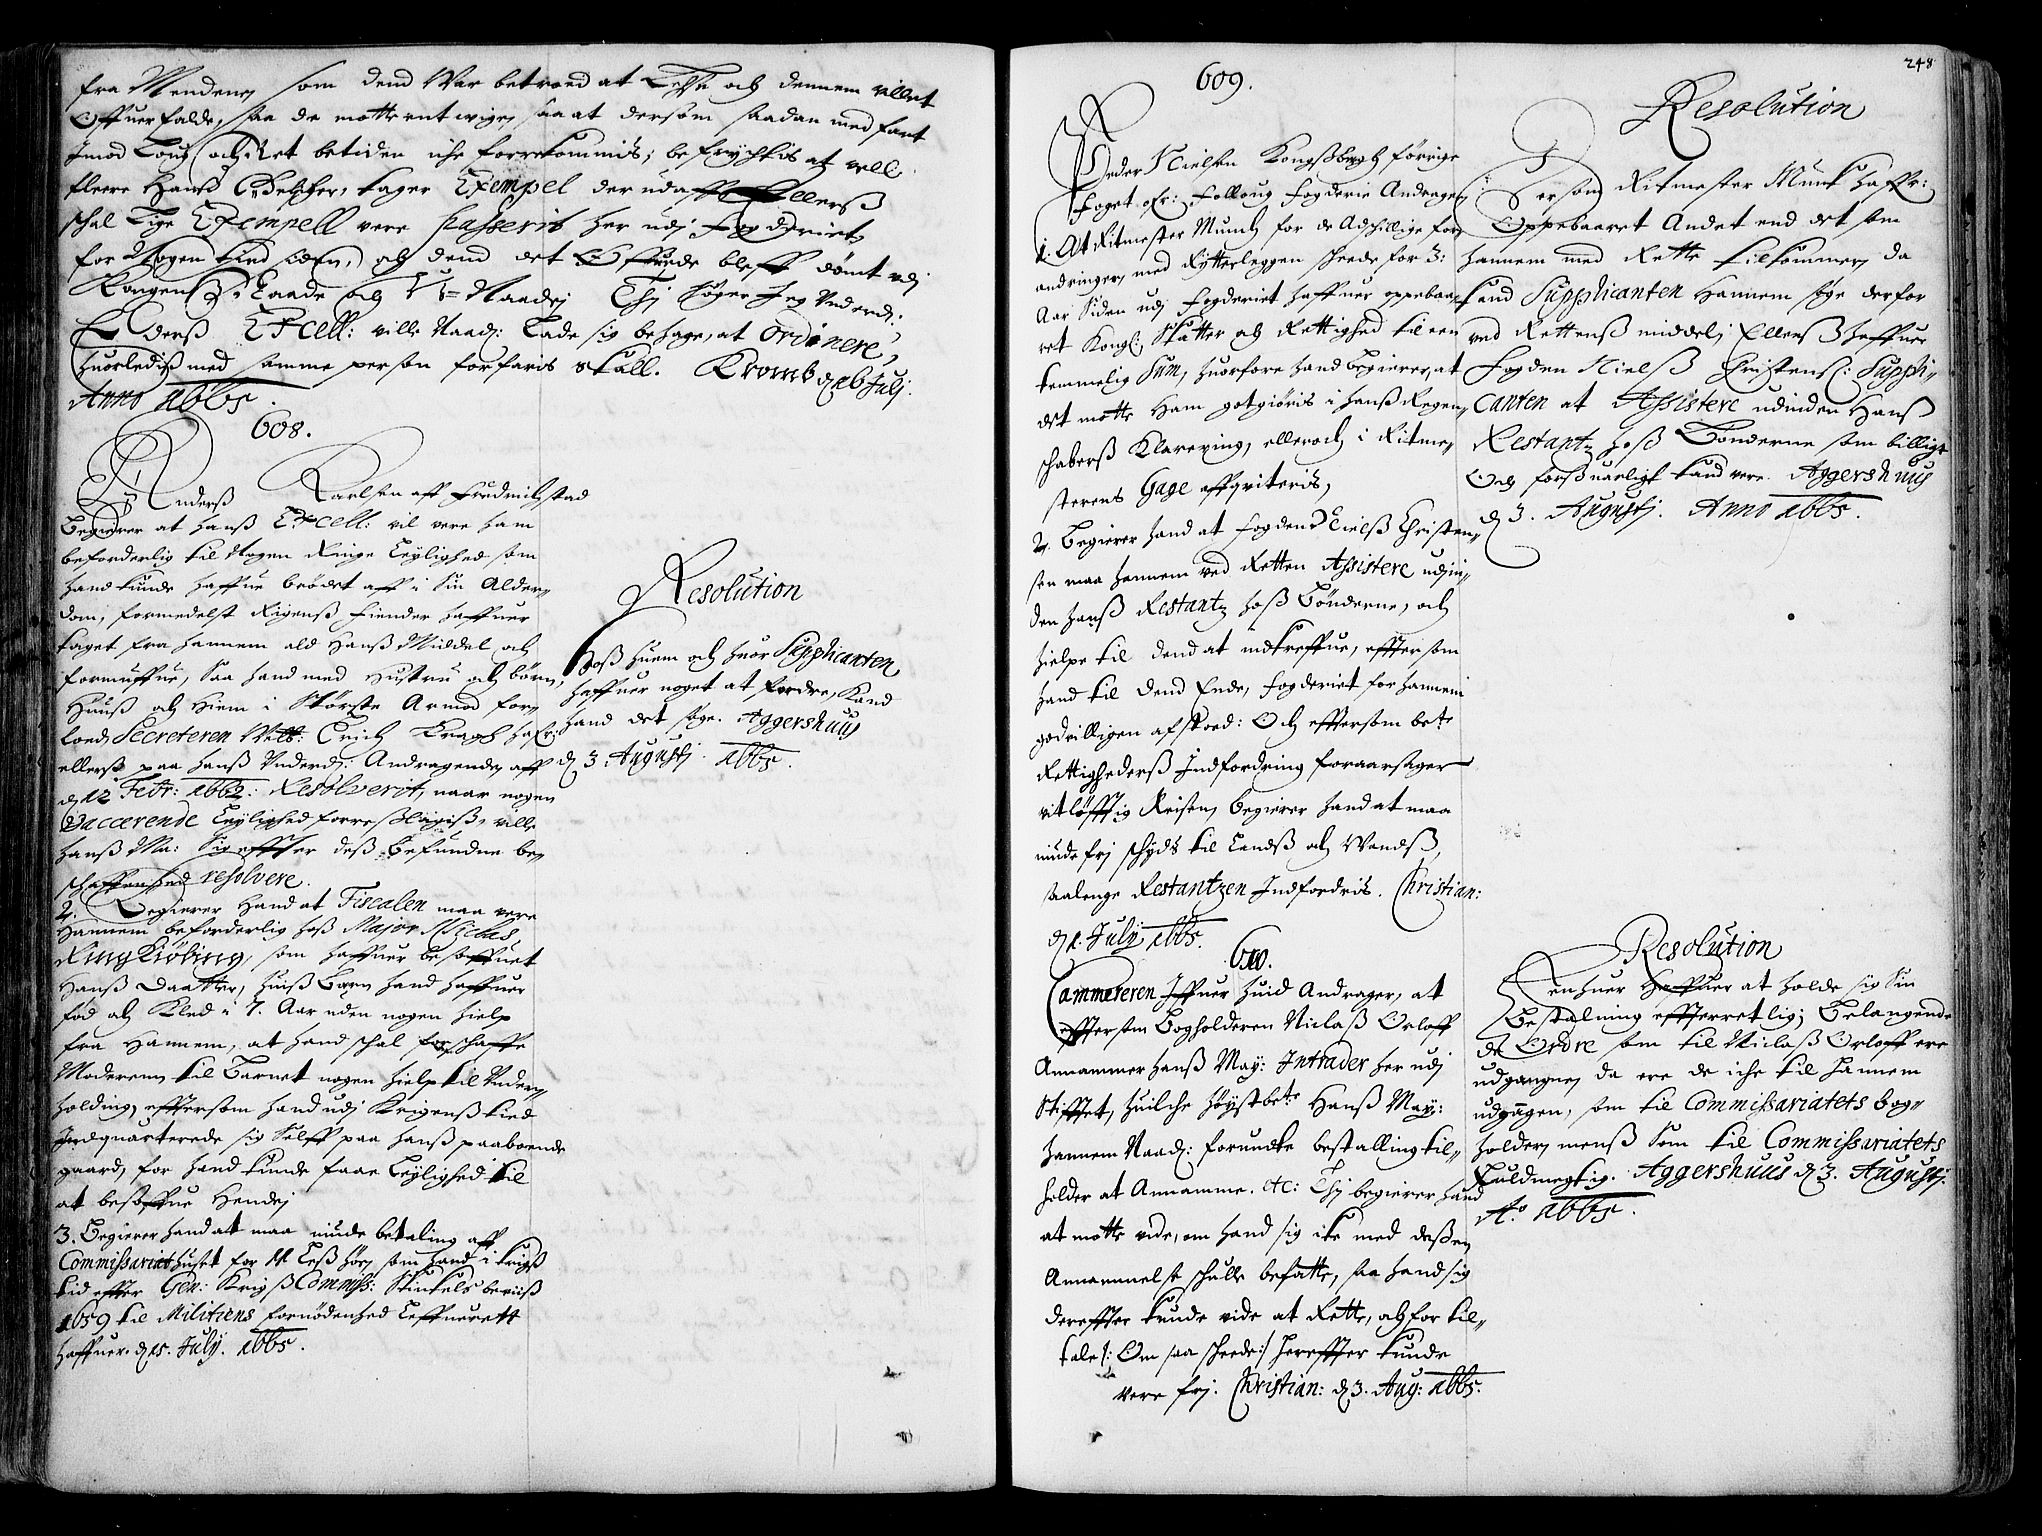 fra Mendene som dend War betroed at Lese och dennem villet
Offuerfalde, saa de motte entwige, saa at dersom saadan medfart
Imod Loug och Ret betiden iche forrekommis; befrychtis at vell
fleere Hanß tager Exempel der udaff Ellerß
schal Lige Exempell vere passerit her udj Fogderiet
for Nogen tiid siden, och dend det Øffuede bleff dömt udj
Kongenß Naade och Unaade; Thj søger Jeg Underd:
Ederß Excell: ville Naad: Lade sig behage, at Ordinere,
Huorlediß med samme person forfaris skall. Kromb d 26 Julj
Anno 1665.
608.
Anderß Karlsen aff Fredrichstad
Begierer at hanß Excell: vil vere ham
beforderlig til Nogen Ringe Leylighed som
hand kunde haffue brødet aff i Sin Alder-
dom, formedelst Rigenß fiender haffuer
taget fra hannem ald Hanß Middel och
formuffue, Saa hand med Hustru och börn,
Huuß och Hiem i Störste Armod for-
loed, Secreteren Welb: Erich Kragh hafr:
ellerß paa hanß Underd: Andragende aff
d 12 Febr: 1662: Resolverit, naar nogen
Vaccerende Leylighed forreslagiß, ville
hanß Ma: Sig effter deß Befundne be-
schaffenhed resolvere.
2. Begierer Hand at Fiscalen maa vere
Hannem beforderlig hoß Major Niclas
RingKiöbing, som haffuer besoffuet
Hanß Daatter, huiß Barn hand haffuer
fød och Kled i 7. Aar uden nogen hielp
fra Hannem, at hand schal forschaffe
Moderen til Barnet nogen hielp til Under-
holding, effttersom hand udj Krigenß tied
Indquarterede sig Selff paa hanß paaboende
gaard, for hand kunde faae Leylighed til
at besoffue Hende;
3. Begierer hand at maa niude betaling aff
Commissariathuset for 11 Leß höe, som hand i krigß
tid effter Gen: Krigß Commiss: Stinkels beviiß
1659 til Militiens fornödenhed Leffuerett
haffuer. d 15. July. 1665.
Resolution
Hoß huem och huor Supplicanten
haffuer noget at fordre, Kand
hand det søge. Aggershuus
d 3 Augustj. 1665.
248
609.
Peder Nielsen Kongßbergh förrige
Foget ofr: Folloug Fogderie Andrager
1. At Ritmester Munch for de Adschillige for-
andringer, med Rytterleggen scheede for 3:
Aar Siden udj Fogderiet haffuer oppebaa-
ret Kongl: Skatter och Rettighed til een
temmelig Sum, huorfore hand begierer, at
det motte Ham gotgiöris i hanß Regen-
schaberß Klarering, elleroch i Ritme-
sterens Gage affqviteris,
2. Begierer hand at fogden Nielß Christen-
sen maa hannem ved Retten Assistere udj in-
den hanß Restantz hoß Bönderne, och
hielpe til dend at indkreffue, efftersom
hand til dend Ende, fogderiet for hannem
godvilligen afstoed: Och efftersom bete
Rettighederß Indfordring foraarsager
vitløfftig Reisen, begierer hand at maa
niude frj schyds til Landß och Wandß,
saalenge Restantzen Indfordris. Christian:
d 1. July 1665.
610.
Cammereren Iffuer Huid Andrager, at
efftersom Bogholderen Niclaß Orloff
Annammer hanß May: Intrader her udj
Stifftet, huilche höystbete Hanß May:
hannem Naad: forundte bestalling til-
holder at Annamme. etc: Thj begierer hand
at motte vide, om hand sig icke med deßen
Annammelse schulle befatte, saa hand sig
dereffter kunde vide at Rette, och for til-
tale /: Om saa scheede :/ hereffter kunde
vere frj. Christian: d 3. Aug: 1665.
Resolution
Dersom Ritmester Munk haffr:
Oppebaaret Andet end det som
hannem med Rette tilkommer, da
kand Supplicanten Hannem søge derfor
ved Rettenß middel; Ellerß haffuer
Fogden Nielß Christens: Suppli-
canten at Assistere udinden Hanß
Restantz hoß Bönderne som billigt
Och forßuarligt kand vere. Aggershuus
d 3. Augustj. Anno 1665.
Resolution
Enhuer Haffuer at holde sig Sin
Bestalning effterretlig; Belangende
de Ordre som til Niclaß Orloff ere
udgangne, da ere de iche til Hannem
udgangen, som til Commissariatets bog-
holder, menß Som til Commissariatets
Fuldmegtig. Aggershuus d 3. Augustj.
Ao. 1665.